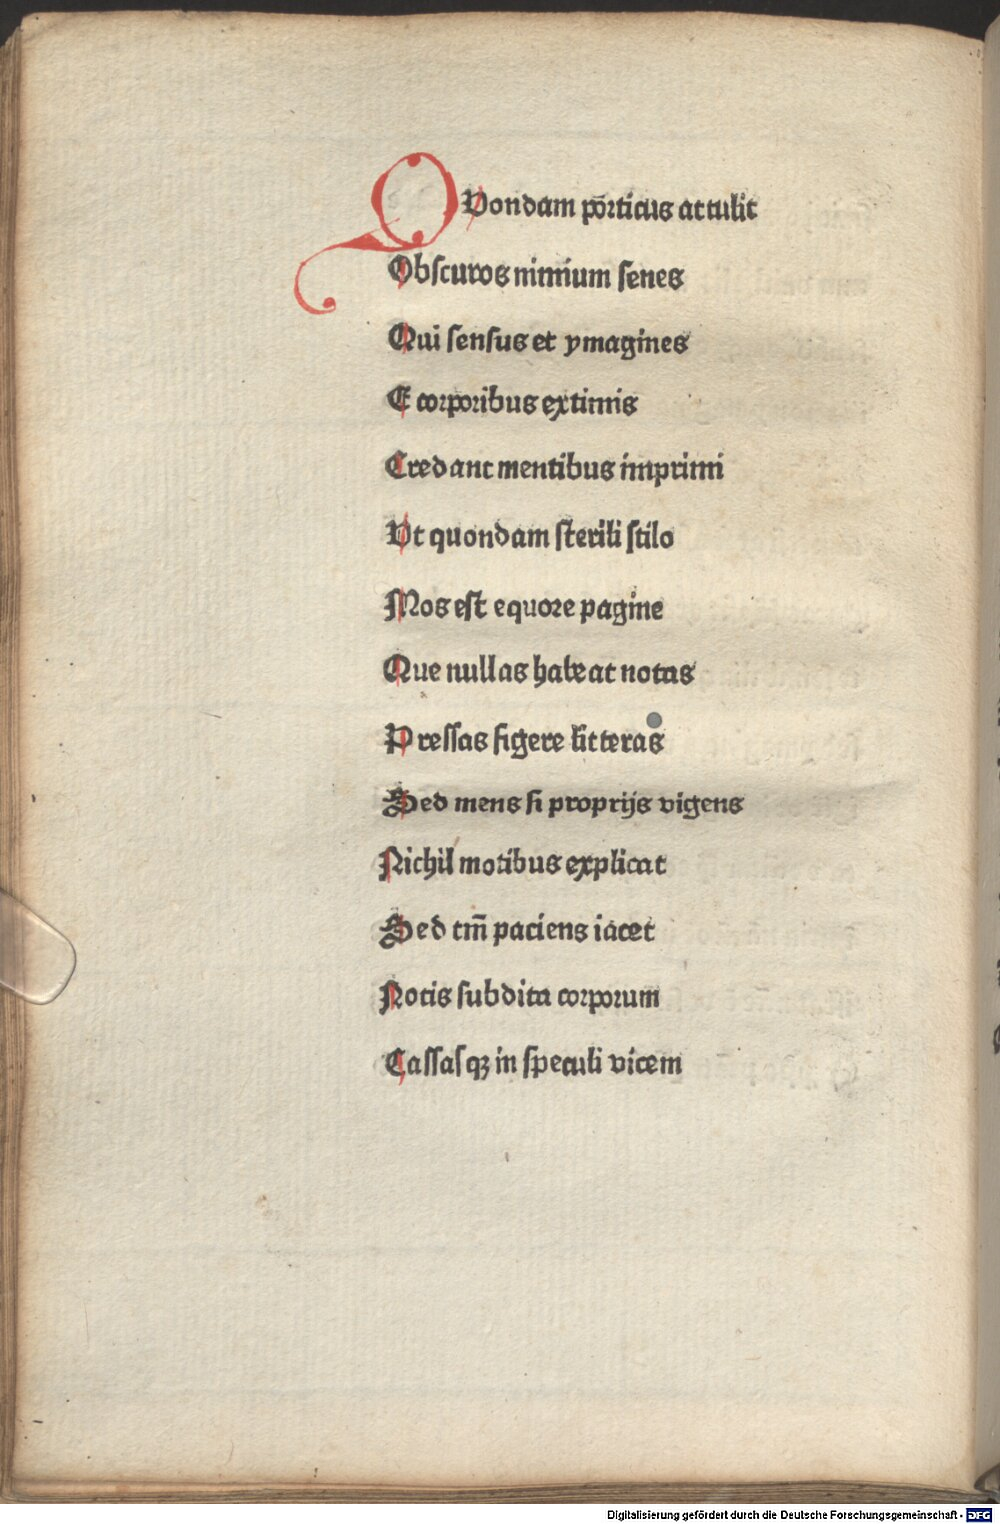 QVondam põrticus attulit
Obscuros nimium senes
Qui sensus et ymagines
E corporibus extimis
Credant mentibus imprimi
Vt quondam sterili stilo
Mos est equore pagine
Que nullas habeat notas
Pressas figere litteras
Sed mens si proprijs vigens
Nichil motibus explicat
Sed tm̄ paciens iacet
Notis subdita corporum
Cassasqꝫ in speculi vicem
Digitalisierung gefördert durch die Deutsche Forschungsgemeinschaft - DFG